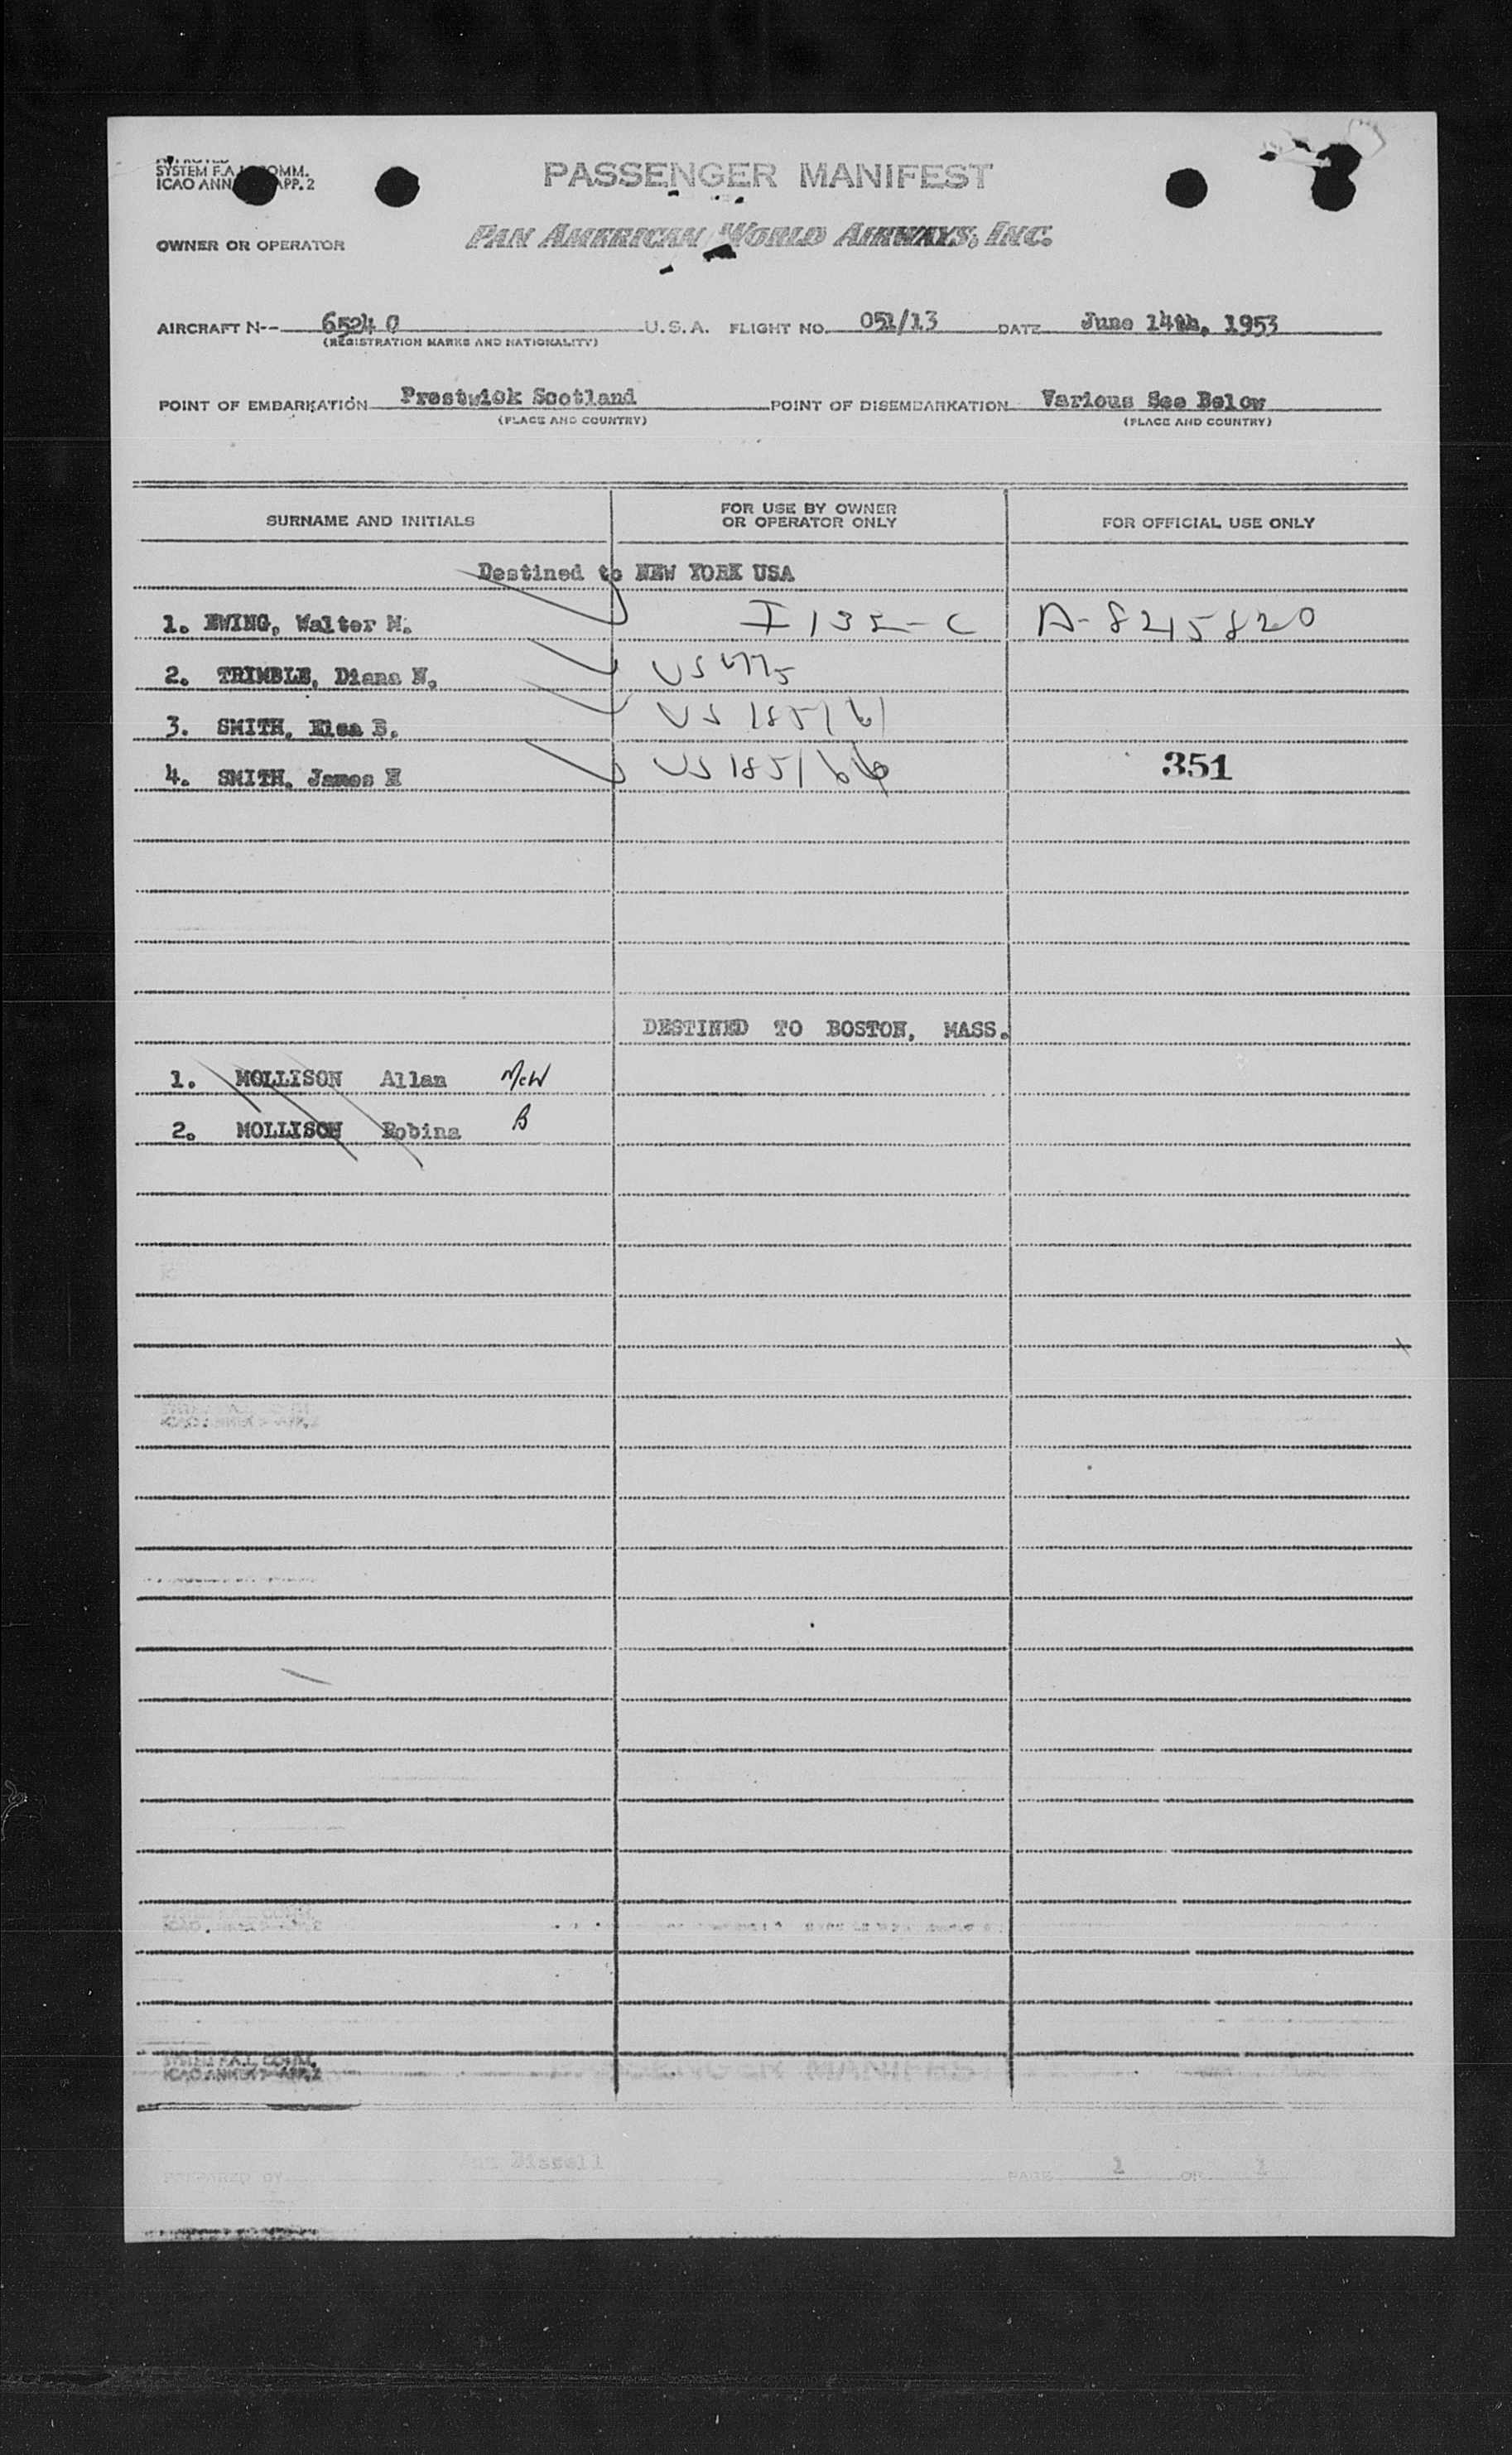 SYSTEM F.A.L. COMM.
ICAO ANN APP. 2
PASSENGER MANIFEST
OWNER OR OPERATOR PAN AMERICAN WORLD AIRWAYS, INC.
AIRCRAFT N-- 6524 C U.S.A. FLIGHT NO. 051/13 DATE June 14th, 1953
(REGISTRATION MARKS AND NATIONALITY)
POINT OF EMBARKATION Prestwick Scotland POINT OF DISEMBARKATION Various See Below
(PLACE AND COUNTRY) (PLACE AND COUNTRY)
SURNAME AND INITIALS FOR USE BY OWNER OR OPERATOR ONLY FOR OFFICIAL USE ONLY
Destined to NEW YORK USA
1. EWING, Walter M. I 135-C A-8215820
2. TRIMBLE, Diana N. US
3. SMITH, Elsa B. US 185161
4. SMITH, James H US 185166 351
DESTINED TO BOSTON, MASS.
1. MOLLISON Allan McW
2. MOLLISON Robina B
SYSTEM F.A.L. COMM.
ICAO ANNEX 9-APP. 2
PREPARED BY PAGE 1 OF 1